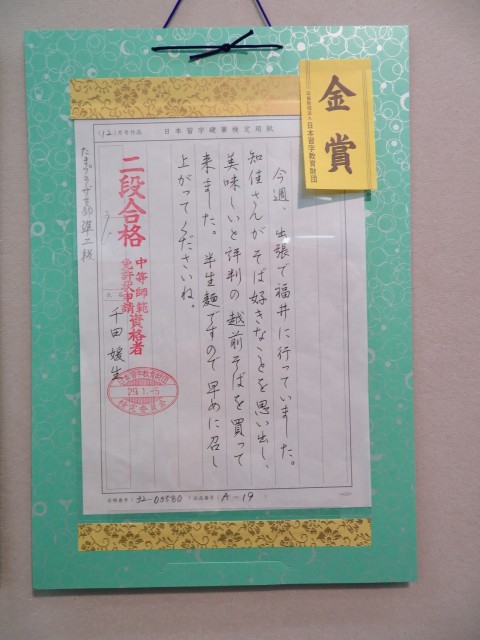 金賞
公益財団法人 日本習字教育財団
(12)月号作品 日本習字硬筆検定用紙
今週、出張で福井に行っていました。
知佳さんがそば好きなことを思い出し、
美味しいと評判の越前そばを買って
来ました。半生麺ですので早めに召し
上がってくださいね。
二段合格
中等師範資格者
免許状申請
氏名
千田媛生
日本習字教育財団
29.1.-5
検定委員会
準二段
(32-03580) (A-19)